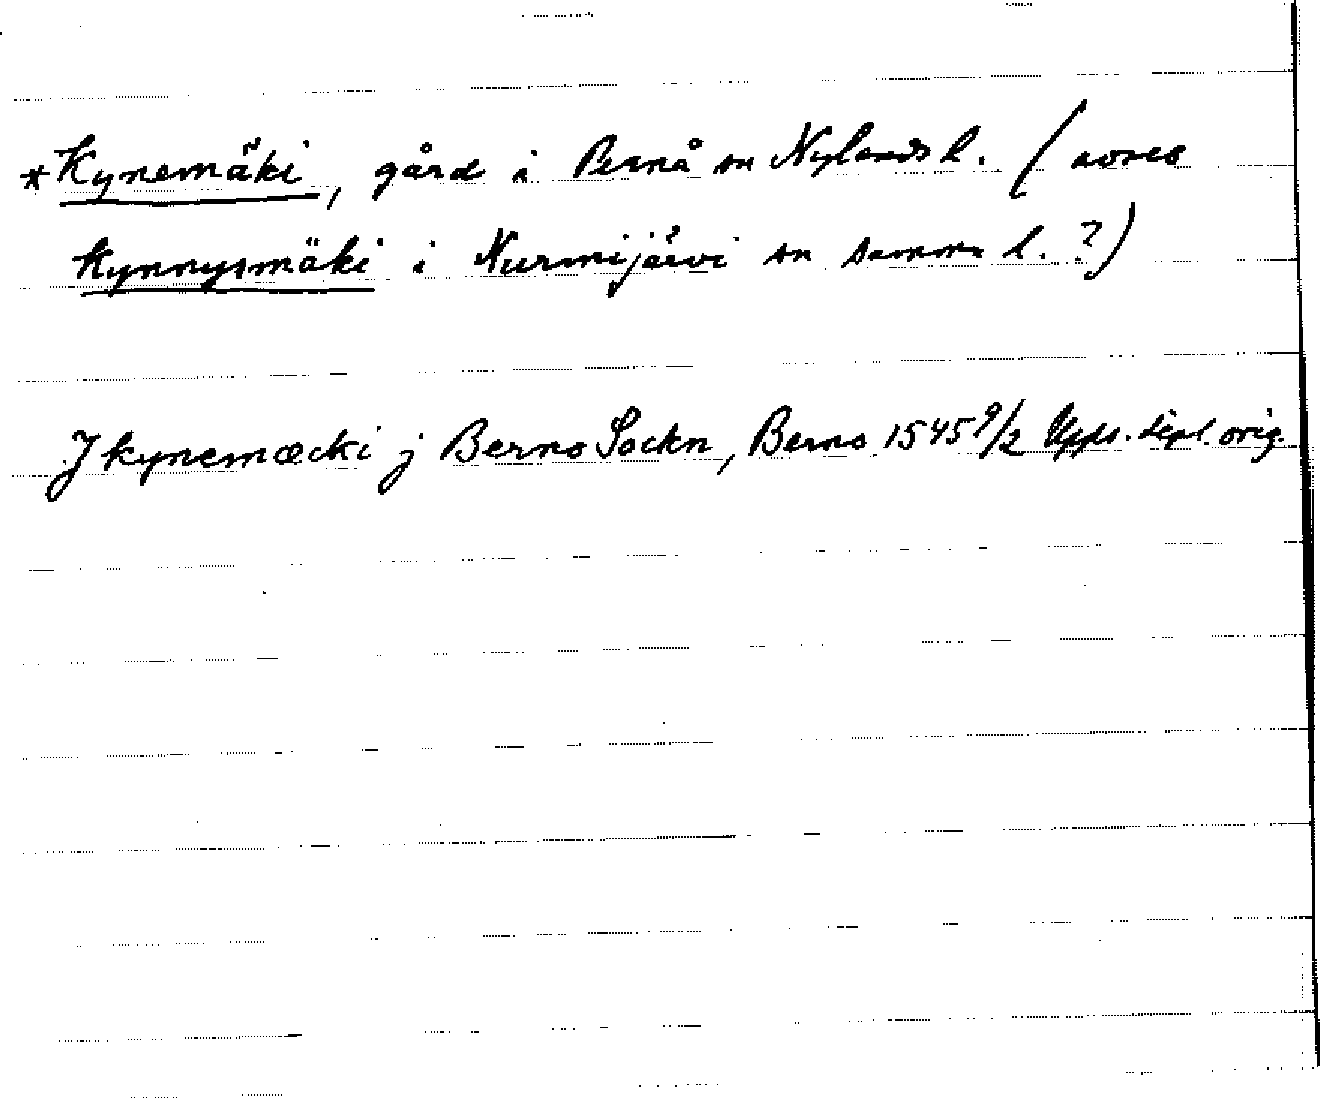 *Kynemäki, gård i Pernå sn Nylands l. (avses
Kynnysmäki i Nurmijärvi sn samma l.?)
J kynemæcki j Berno Sockn, Berno 1545 9/2 Uppl. dipl. orig.